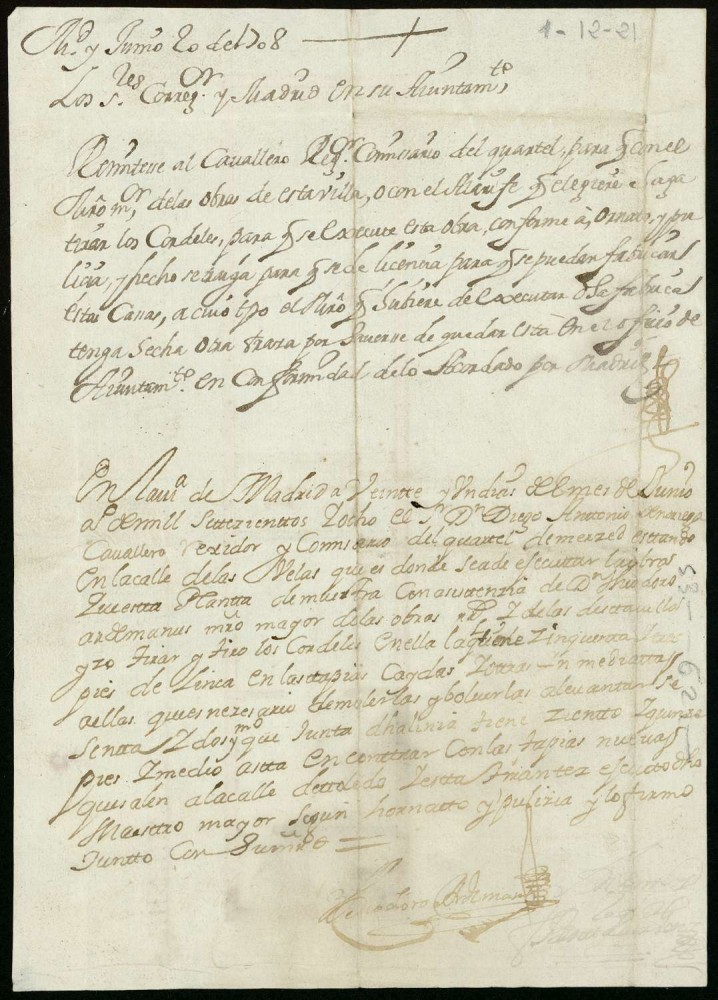 1-12-21
M.d y Junio 20 de 1708
Los S.res Correg.or y Madrid en su Aiuntam.to
Remitese al Cavallero Reg.or Comissario del quartel, para q con el
Mrô m.or de las obras de esta villa, o con el Alarife q eligiere se haga
tirar los Cordeles, para q se execute esta obra, conforme à, Ornato, y pu
licia, y hecho se traiga para q se de licencia para q se puedan fabricar
estas Casas, a cuio tpo el Mrô q hubiere de executar dha fabrica
tenga hecha otra traza por haverse de quedar esta en el oficio de
Aiuntam.to en conformidad de lo Acordado por Madrid
En la v.a de Madrid a Veintte y Un dias del mes de Junio
año de mill settezienttos y ocho el S.r D.n Diego Anttonio
Cavallero rexidor y Comisario del quartel de merzed estando
en la calle de las Velas que es donde se a de ejecutar la obra
que esta Plantta demuestra Con asistenzia de D.n theodoro
ardemanus mrô mayor de las obras R.s y de las de sta villa
yzo tirar y tiro los Cordeles en ella la q tiene zinquenta y seis
pies de linea en las tapias Caydas y otras ynmediattas
a ellas que es nezesario demolerlas y bolverlas a levantar se
sentta y dos y m.o que Junta dha linia tiene zientto y quinze
pies y medio asta encontrar Con las tapias nuevas
que salen a la calle de ttoledo y esta Tirantez ejecutto dho
Maesttro mayor segun hornatto y pulizia y lo firmo
Juntto Con Su m.d =
Theodoro Ardemans